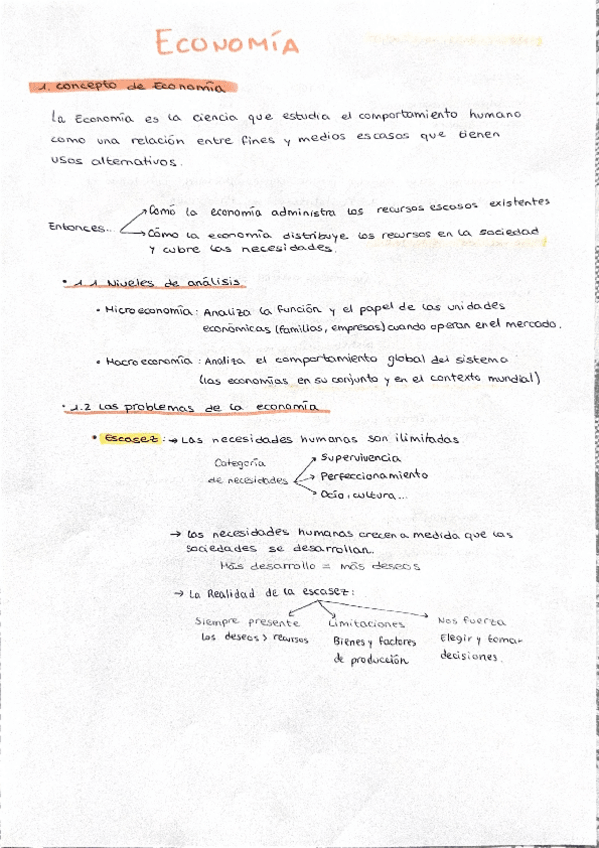 ECONOMÍA
1. Concepto de Economía
La Economía es la ciencia que estudia el comportamiento humano
como una relación entre fines y medios escasos que tienen
usos alternativos.
Entonces...
Como la economía administra los recursos escasos existentes
Cómo la economía distribuye los recursos en la sociedad
y cubre las necesidades.
• 1.1 Niveles de análisis
• Microeconomía: Analiza la función y el papel de las unidades
económicas (familias, empresas) cuando operan en el mercado.
• Macroeconomía: Analiza el comportamiento global del sistema
(las economías en su conjunto y en el contexto mundial)
• 1.2 Los problemas de la economía
• Escasez: → Las necesidades humanas son ilimitadas
Categoría
de necesidades
→ Supervivencia
→ Perfeccionamiento
→ Ocio, cultura...
→ Las necesidades humanas crecen a medida que las
sociedades se desarrollan.
Más desarrollo = más deseos
→ La Realidad de la escasez:
Siempre presente
los deseos > recursos
Limitaciones
Bienes y factores
de producción
Nos fuerza
Elegir y tomar
decisiones.